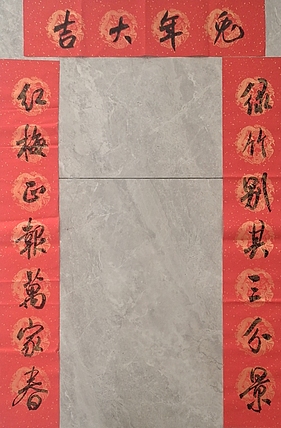 兔年大吉
绿竹别其三分景
红梅正報萬家春